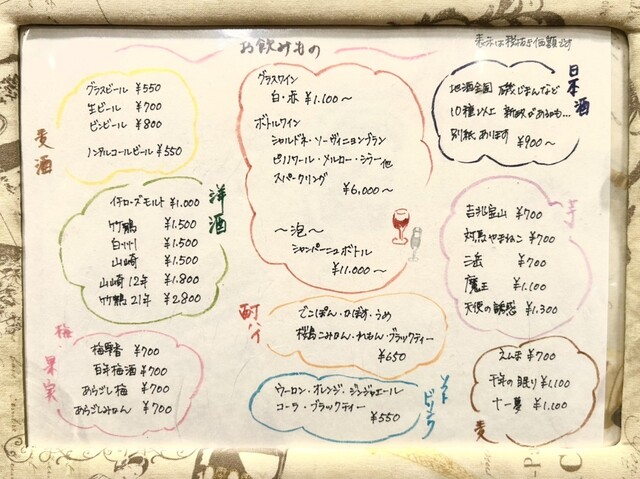 お飲みもの
表示は税抜き価額です
麦酒
グラスビール ¥550
生ビール ¥700
ビンビール ¥800
ノンアルコールビール ¥550
グラスワイン
白・赤 ¥1.100〜
ボトルワイン
シャルドネ・ソーヴィニョンブラン
ピノノワール・メルロー・シラー他
スパークリング
¥6,000〜
〜泡〜
シャンパーニュボトル
¥11.000〜
日本酒
地酒全国 磯じまんなど
10種以上
別紙あります
¥900〜
洋酒
イチローズモルト ¥1.000
竹鶴 ¥1.500
白州 ¥1.500
山崎 ¥1.500
山崎12年 ¥1.800
竹鶴21年 ¥2.800
芋
吉兆宝山 ¥700
対馬やまねこ ¥700
三岳 ¥700
魔王 ¥1.100
天使の誘惑 ¥1.300
酎ハイ
でこぽん・かぼす・うめ
桜島こみかん・れもん・ブラックティー
¥650
梅
果実
¥700
百年梅酒 ¥700
あらごし梅 ¥700
あらごしみかん ¥700
ソフトドリンク
ウーロン・オレンジ・ジンジャエール
コーラ・ブラックティー
¥550
麦
えんま ¥700
千年の眠り ¥1,100
十一夢 ¥1.100